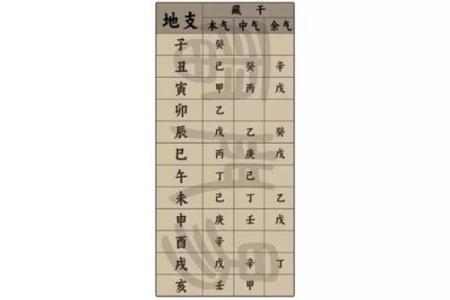 地支 藏干
本气 中气 余气
子 癸
丑 己 癸 辛
寅 甲 丙 戊
卯 乙
辰 戊 乙 癸
巳 丙 庚 戊
午 丁 己
未 己 丁 乙
申 庚 壬 戊
酉 辛
戌 戊 辛 丁
亥 壬 甲